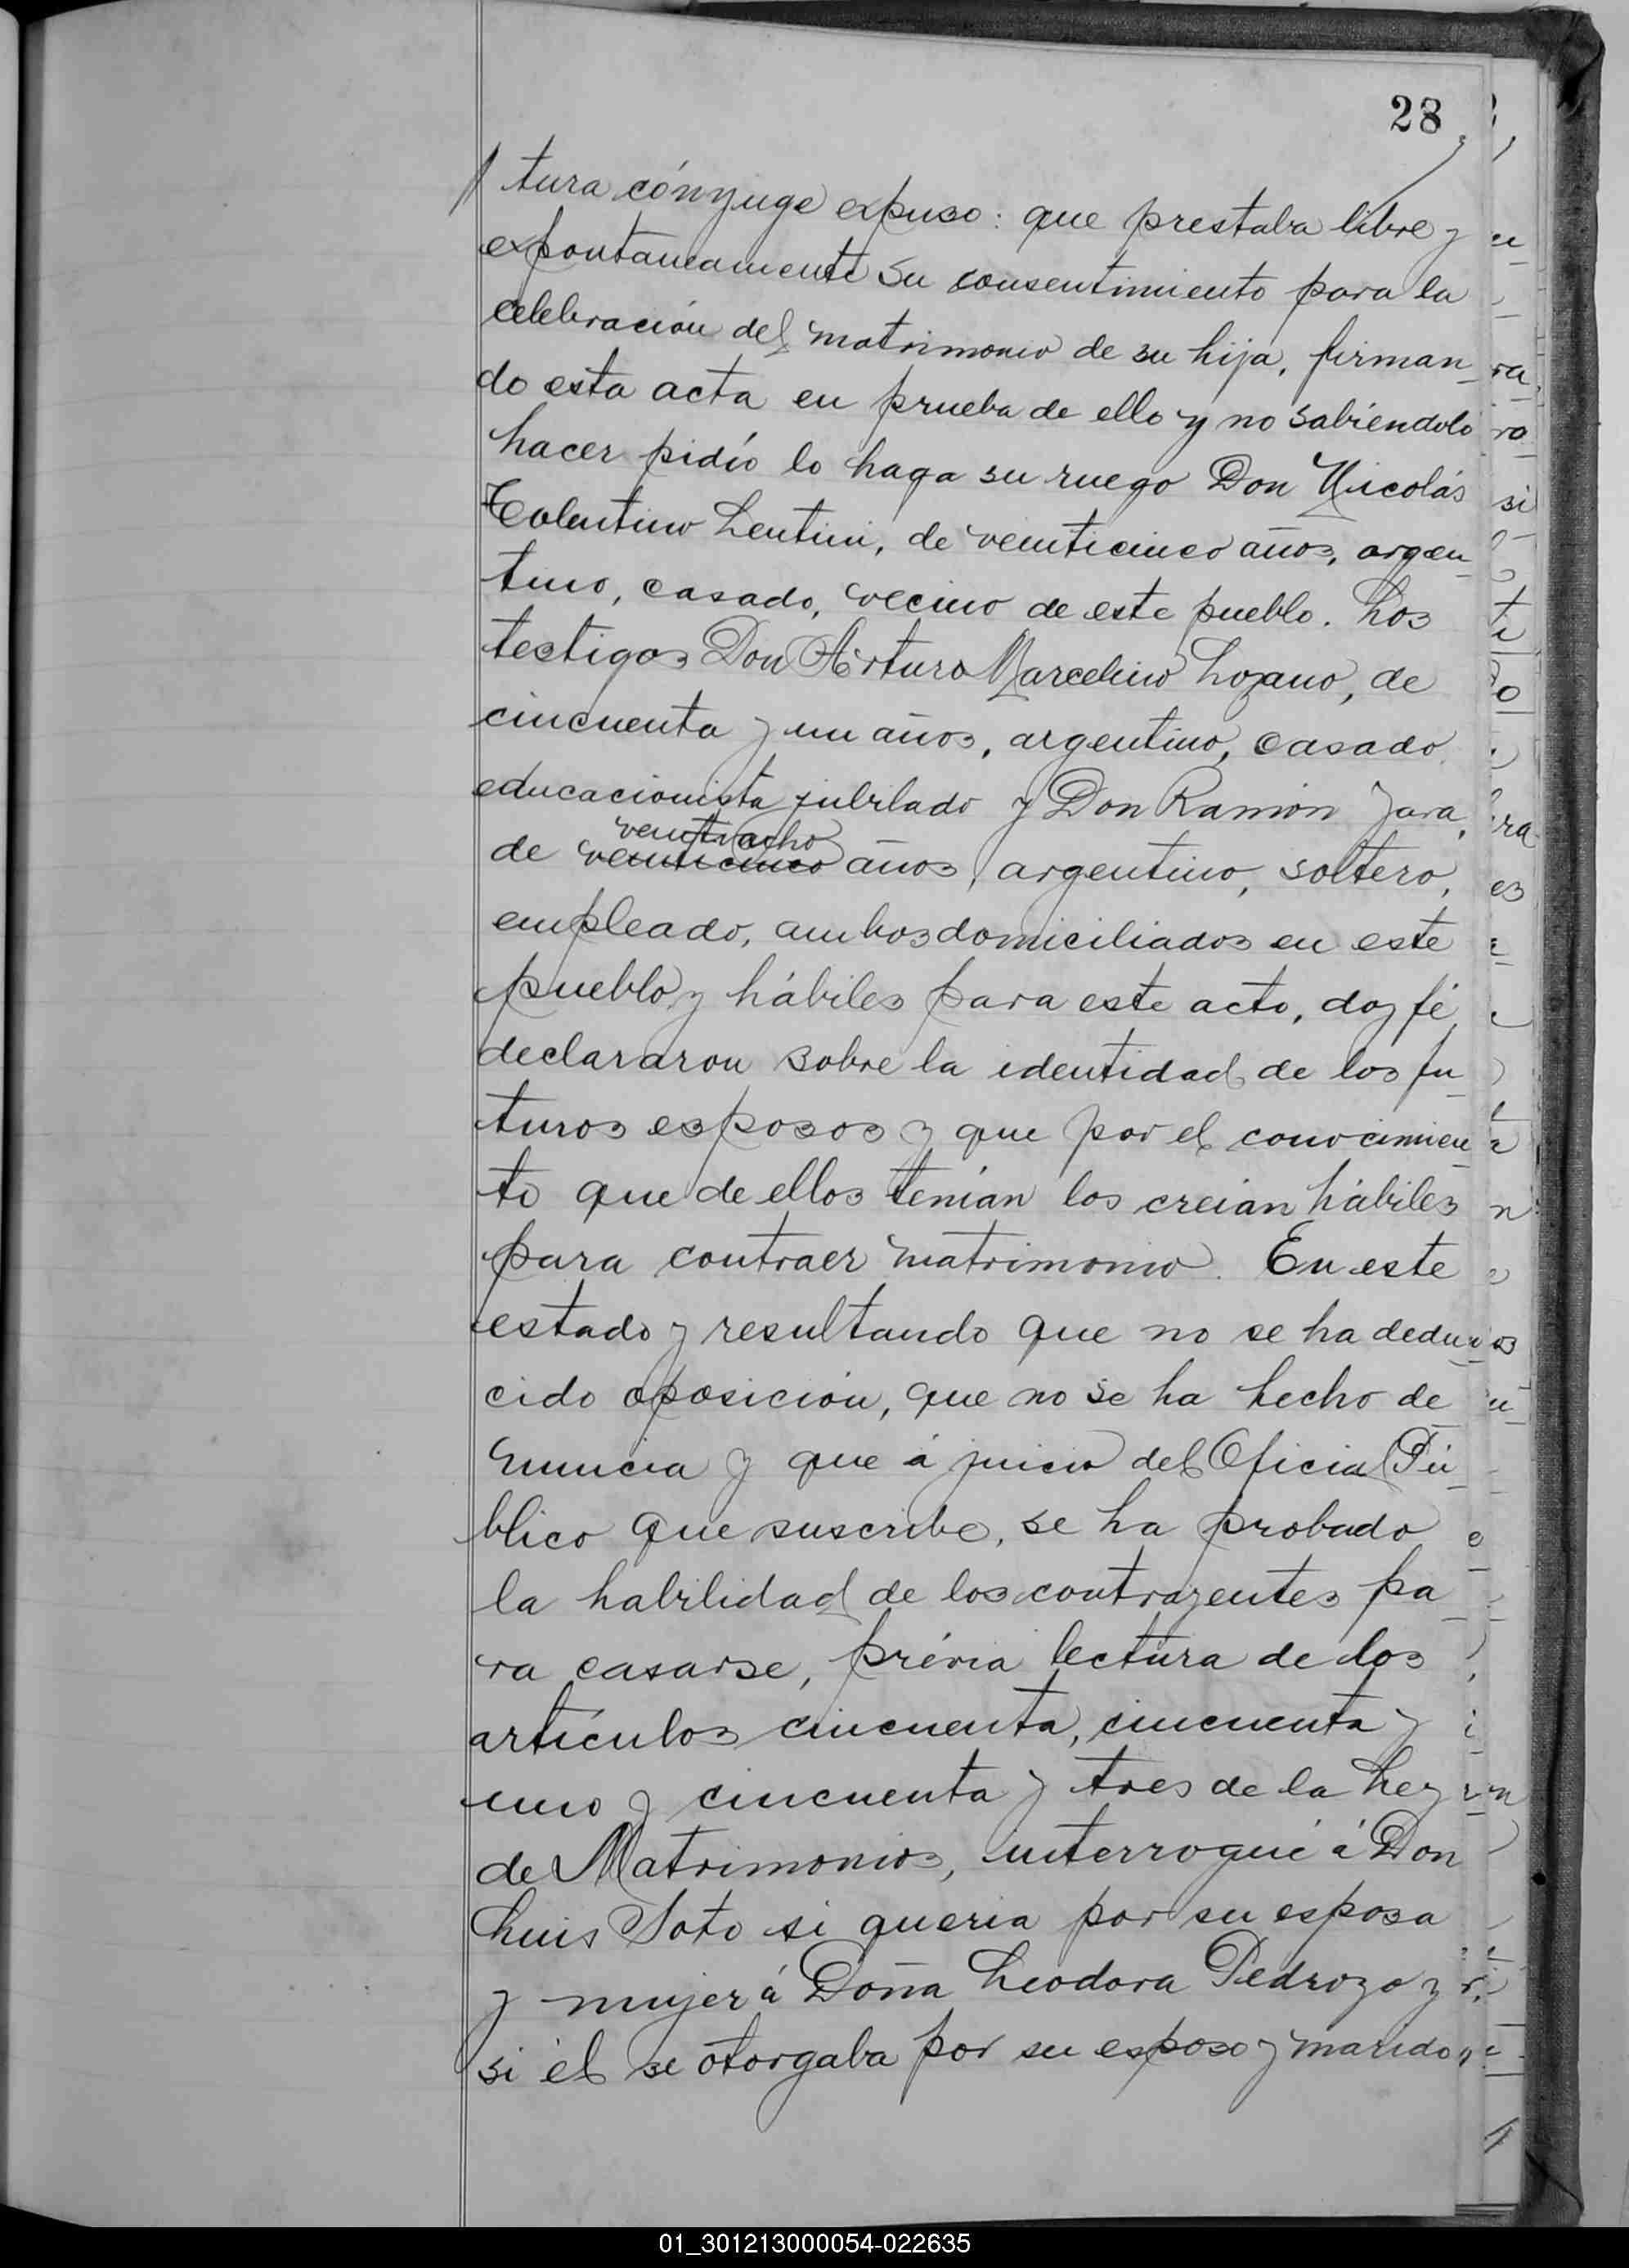 28
tura cónyuge expuso: que prestaba libre y
expontaneamente su consentimiento para la
celebración del matrimonio de su hija, firman
do esta acta en prueba de ello y no sabiéndolo
hacer pidió lo haga su ruego Don Nicolás
Tolentino Lentini, de veinticinco años, argen
tino, casado, vecino de este pueblo. Los
testigos Don Arturo Marcelino Lozano, de
cincuenta y un años, argentino, casado,
educacionista jubilado y Don Ramón Jara,
veintiocho
de veinticinco años, argentino, soltero,
empleado, ambos domiciliados en este
pueblo y hábiles para este acto, doy fé
declararon sobre la identidad de los fu
turos esposos y que por el conocimien
to que de ellos tenían los creían hábiles
para contraer matrimonio. En este
estado y resultando que no se ha dedu
cido oposición, que no se ha hecho de
nuncia y que á juicio del Oficial Pú
blico que suscribe, se ha probado
la habilidad de los contrayentes pa
ra casarse, prévia lectura de los
artículos cincuenta, cincuenta y
uno y cincuenta y tres de la Ley
de Matrimonios, interrogué á Don
Luis Soto si quería por su esposa
y mujer á Doña Leodora Pedrozo y
si él se otorgaba por su esposo y marido
01_301213000054-022635